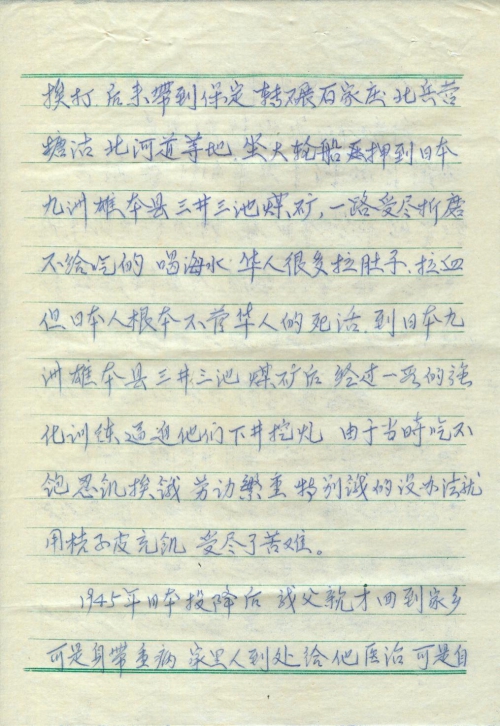 挨打.后来带到保定 转碾石家庄 北兵营
塘沽 北河道等地.坐大轮船 押到日本
九洲雄本县三井三池煤矿，一路受尽折磨
不给吃的 喝海水.华人很多拉肚子、拉血
但日本人根本不管华人的死活.到日本九
洲雄本县三井三池 煤矿后 经过一段的强
化训练 逼迫他们下井挖炭 由于当时吃不
饱忍饥挨饿 劳动繁重 特别饿的没办法就
用桔子皮充饥 受尽了苦难。
1945年日本投降后 我父亲才回到家乡
可是身带重病 家里人到处给他医治 可是自